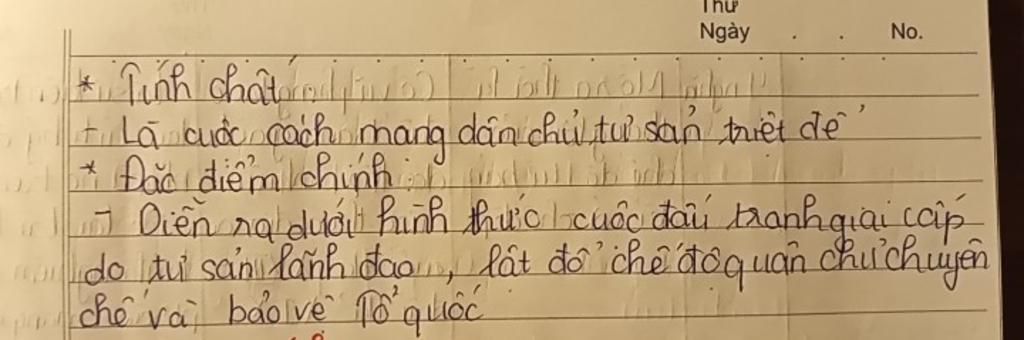 Thứ
Ngày . . No.
* Tính chất
+ Là cuộc cách mạng dân chủ tư sản triệt để
* Đặc điểm chính:
- Diễn ra dưới hình thức cuộc đấu tranh giai cấp
do tư sản lãnh đạo, lật đổ chế độ quân chủ chuyên
chế và bảo vệ Tổ quốc